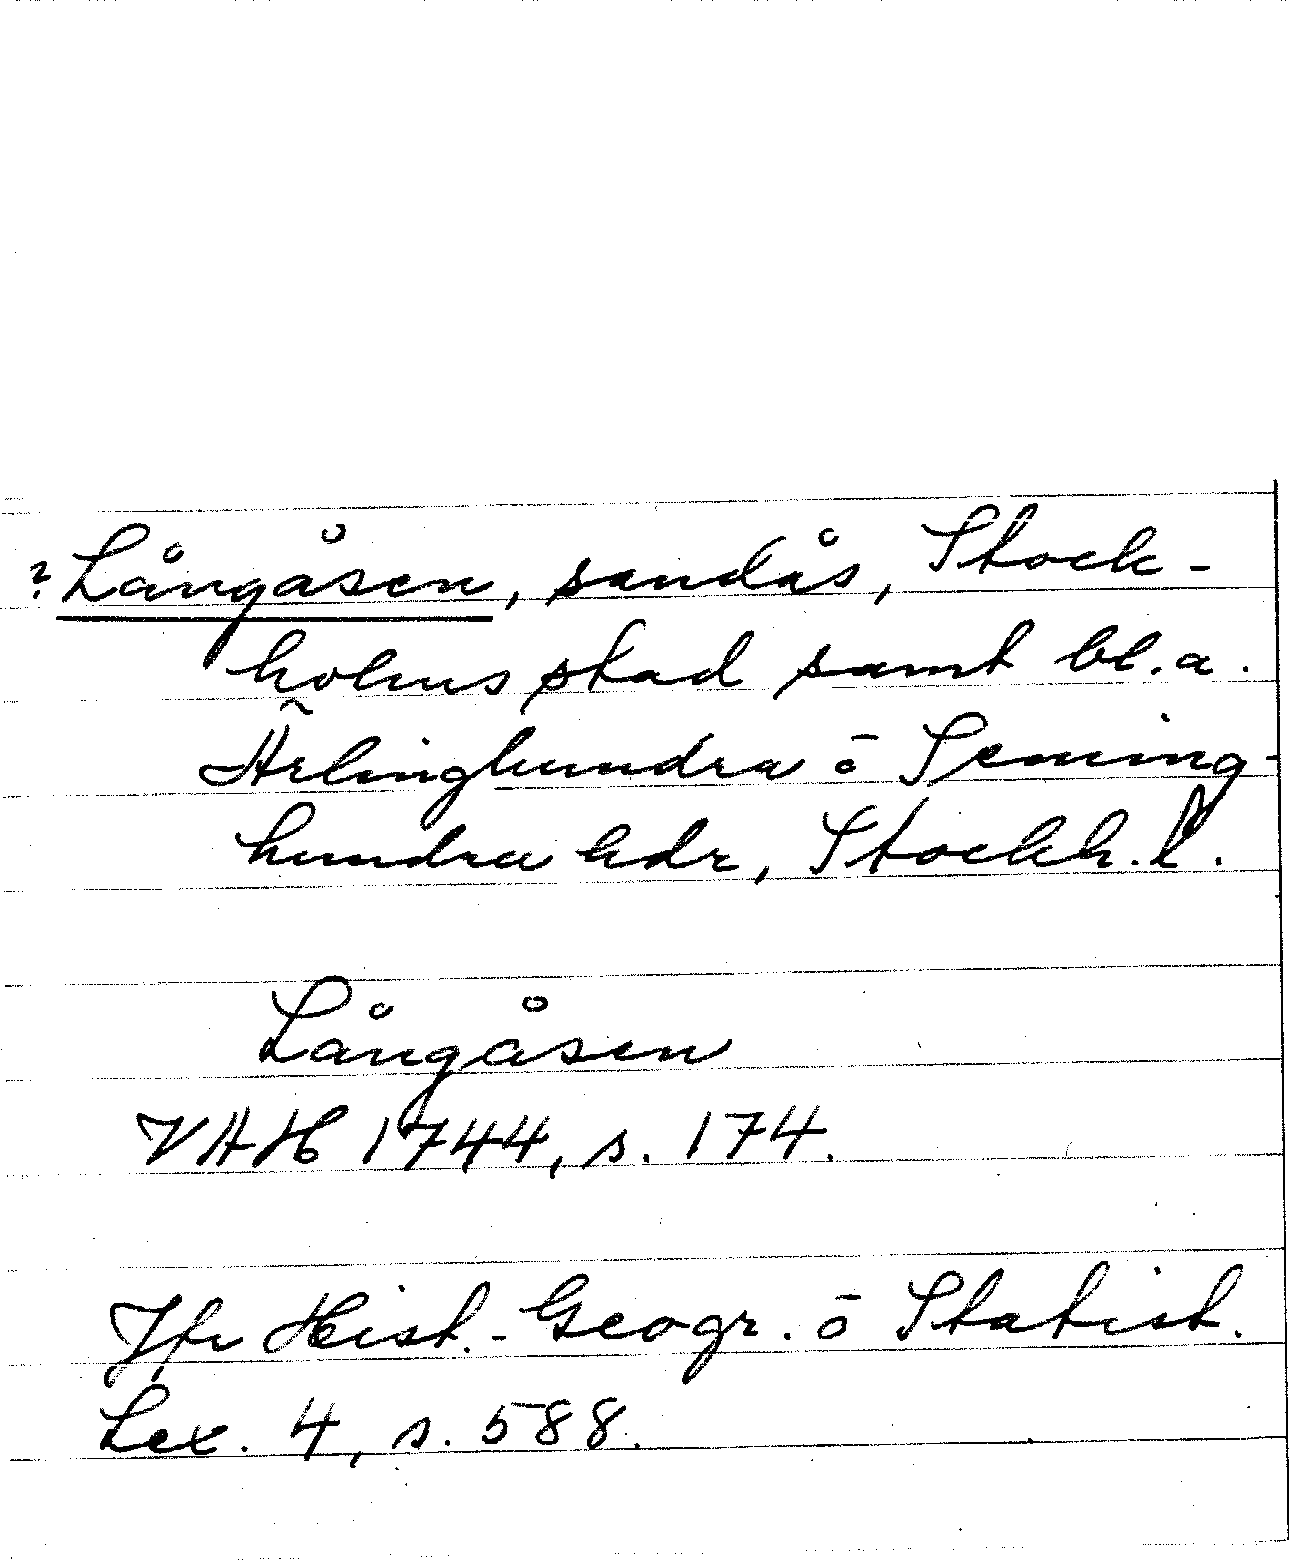 ? Långåsen, sandås, Stock-
holms stad samt bl.a.
Ärlinghundra ō Seming-
hundra hdr, Stockh. l.
Långåsen
VAH 1744, s. 174.
Jfr Hist.-Geogr. ō Statist.
Lex. 4, s. 588.